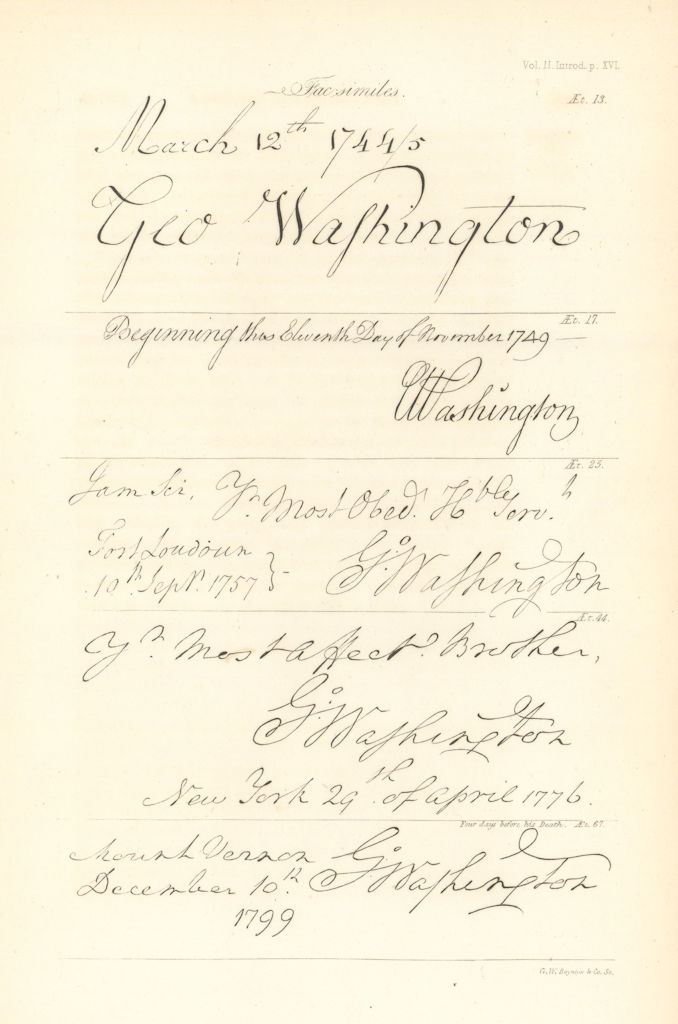 Vol. II. Introd. p. XVI.
Facsimiles.
Æt. 13.
March 12th 1744/5
Geo Washington
Æt. 17.
Beginning this Eleventh Day of November 1749
GWashington
Æt. 25.
I am Sir, Yr. Most Obed. Hble Serv.t
Fort Loudoun
10th. Sepr. 1757
Go: Washington
Æt. 44.
Yr. most affect. Brother,
Go: Washington
New York 29th. of April 1776.
Four days before his Death. Æt. 67.
Mount Vernon
December 10th.
1799
Go: Washington
G. W. Boynton & Co. Sc.